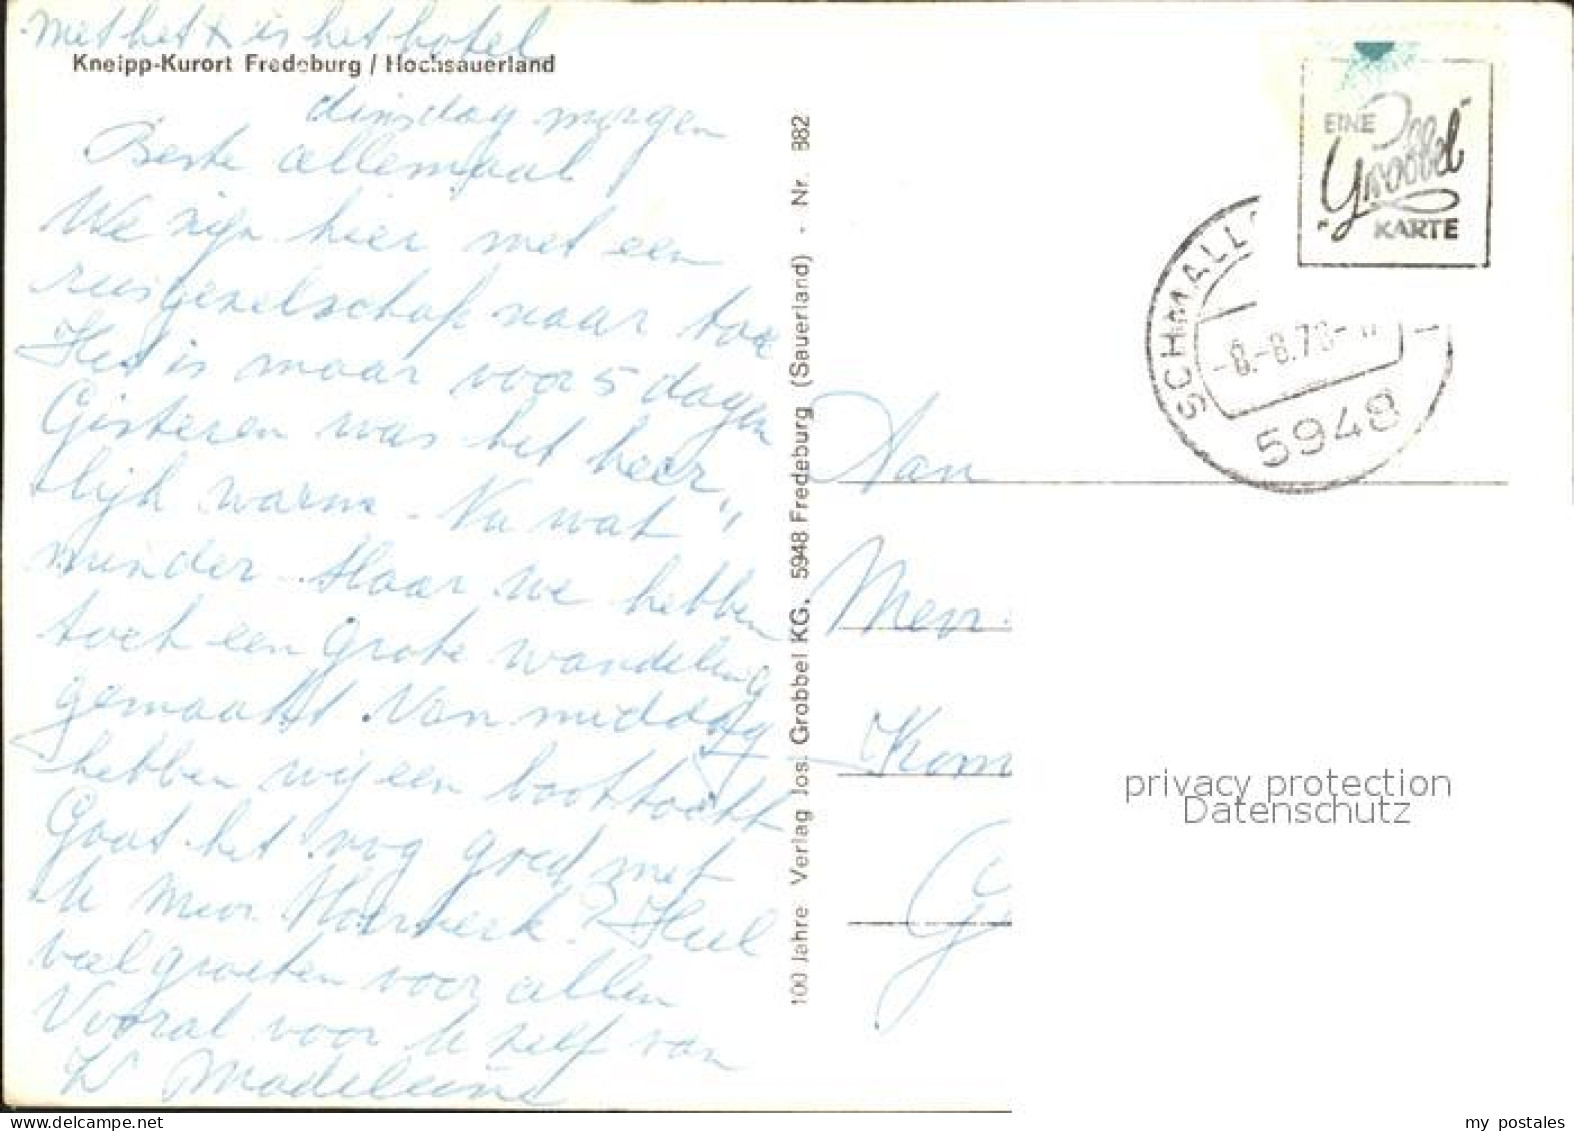 met het x is het hotel
Kneipp-Kurort Fredeburg / Hochsauerland
dinsdag morgen
Beste allemaal
We zijn hier met een
reisgezelschap naar toe
Het is maar voor 5 dagen
Gisteren was het heer"
lijk warm. Nu wat "
minder. Maar we hebben
toch een grote wandeling
gemaakt Van middag
hebben wij een boottocht
Gaat het nog goed met
U Mevr. ? Heel
veel groeten voor allen
Vooral voor U zelf van
Madeleine
100 Jahre Verlag Jos. Grobbel KG. 5948 Fredeburg (Sauerland) - Nr. 882
EINE
"Grobbel"
KARTE
SCHMALL
-8.-8.78-
5948
Aan
Mevr.
Kom
G
privacy protection
Datenschutz
my postales